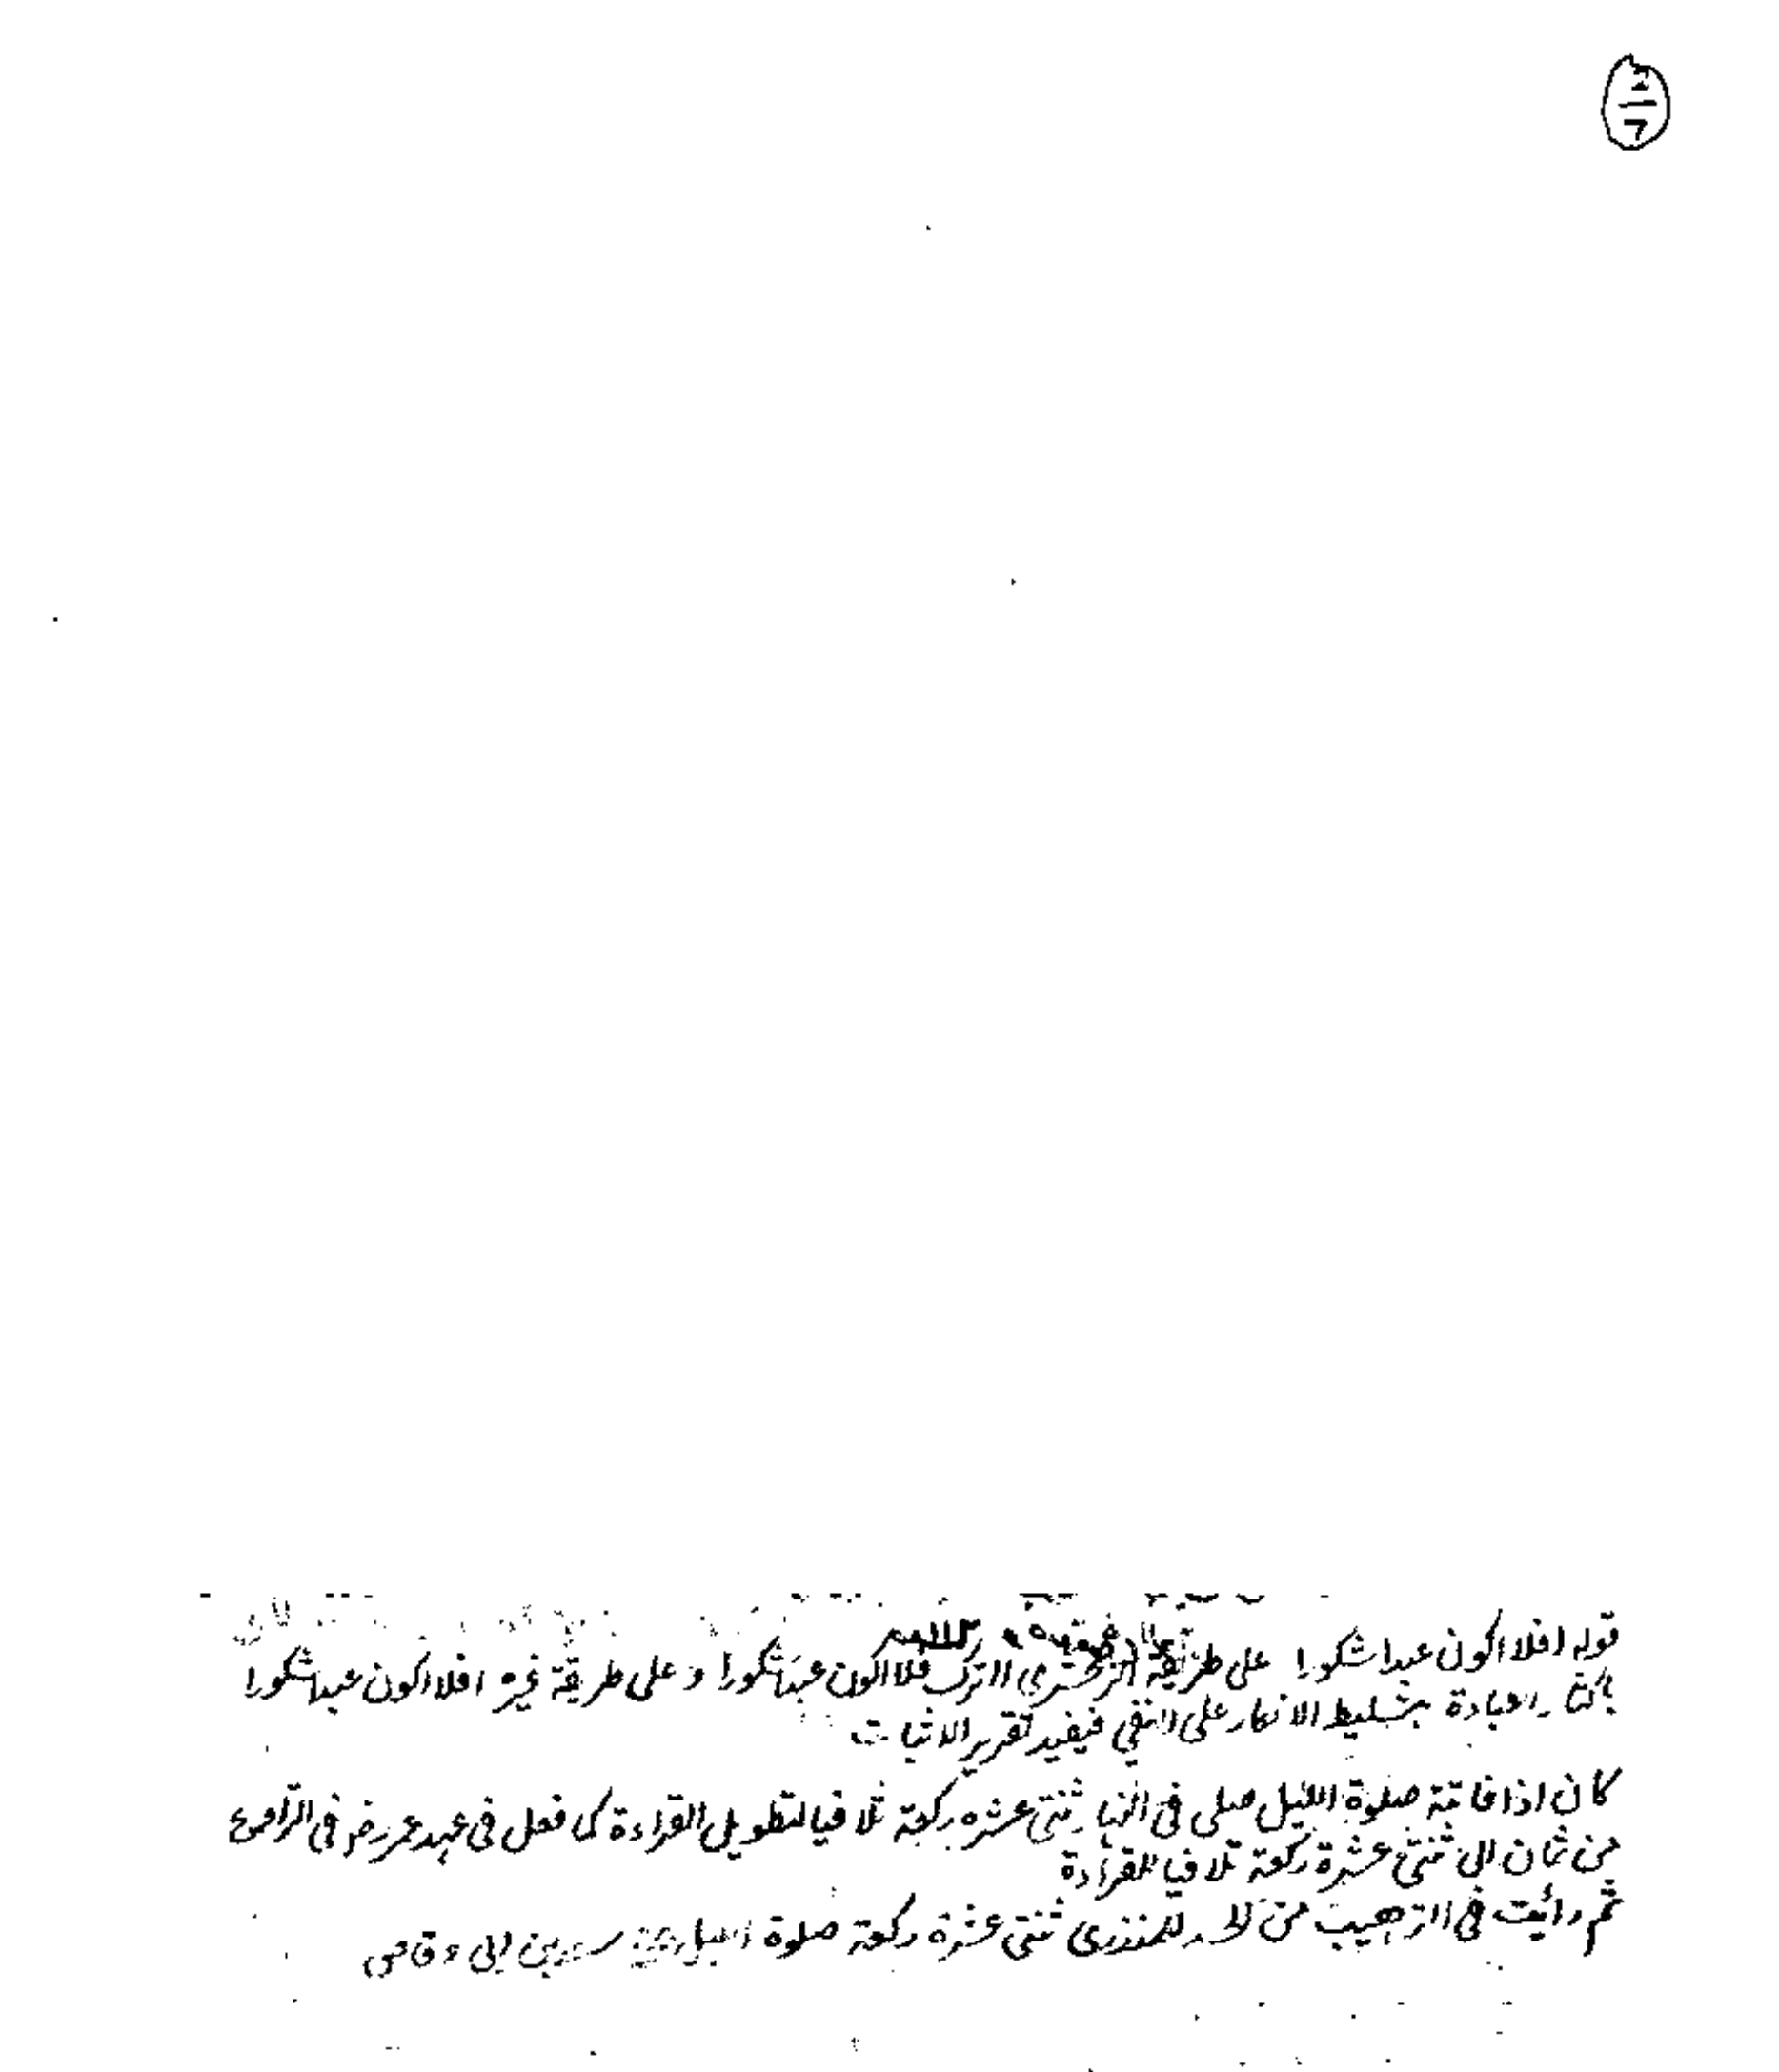 قوله افلا اكون عبدا شكورا على طريقة الزمخشرى ااترك فلا اكون عبدا شكورا و على طريقة غيره افلا اكون عبدا شكورا
باكثار العبادة بتسليط الانكار على النفى فيفيد تقرير الاثبات
كان اذا فاتته صلوة الليل صلى فى النهار ثنتى عشره ركعة تلافيا لتطويل القراءة كما فعل فى عهد عمر رض فى التراويح
من ثمان الى ثنتى عشرة ركعة تلافيا للقراءة
ثم رأيت فى الترهيب من للمنذرى ثنتى عشرة ركعة صلوة ابى وقاص